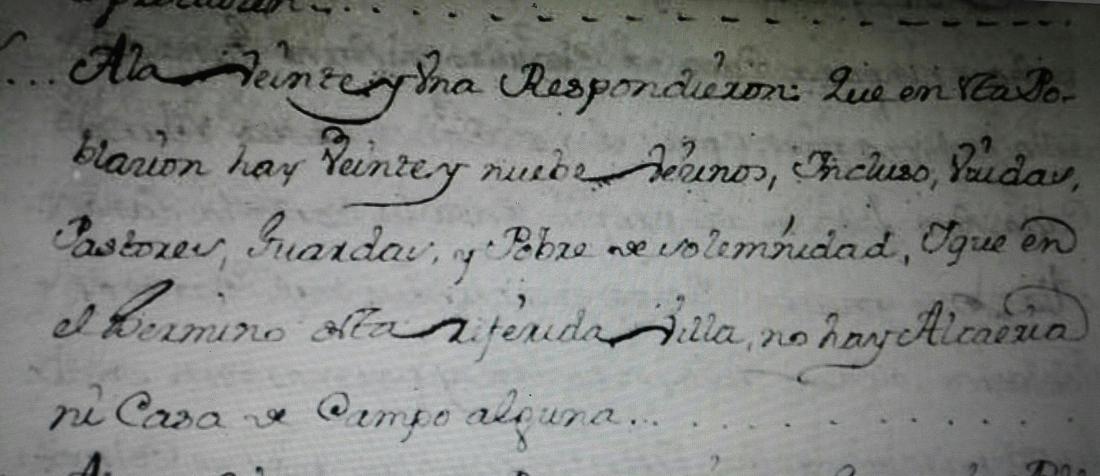 Ala Veinte y Una Respondieron: Que en esta Po-
blacion hay Veinte y nuebe Vecinos, Incluso, Viudas,
Pastores, Guardas, y Pobre de solemnidad, Yque en
el Termino esta referida Villa, no hay Alcaeria
ni Casa de Campo alguna...